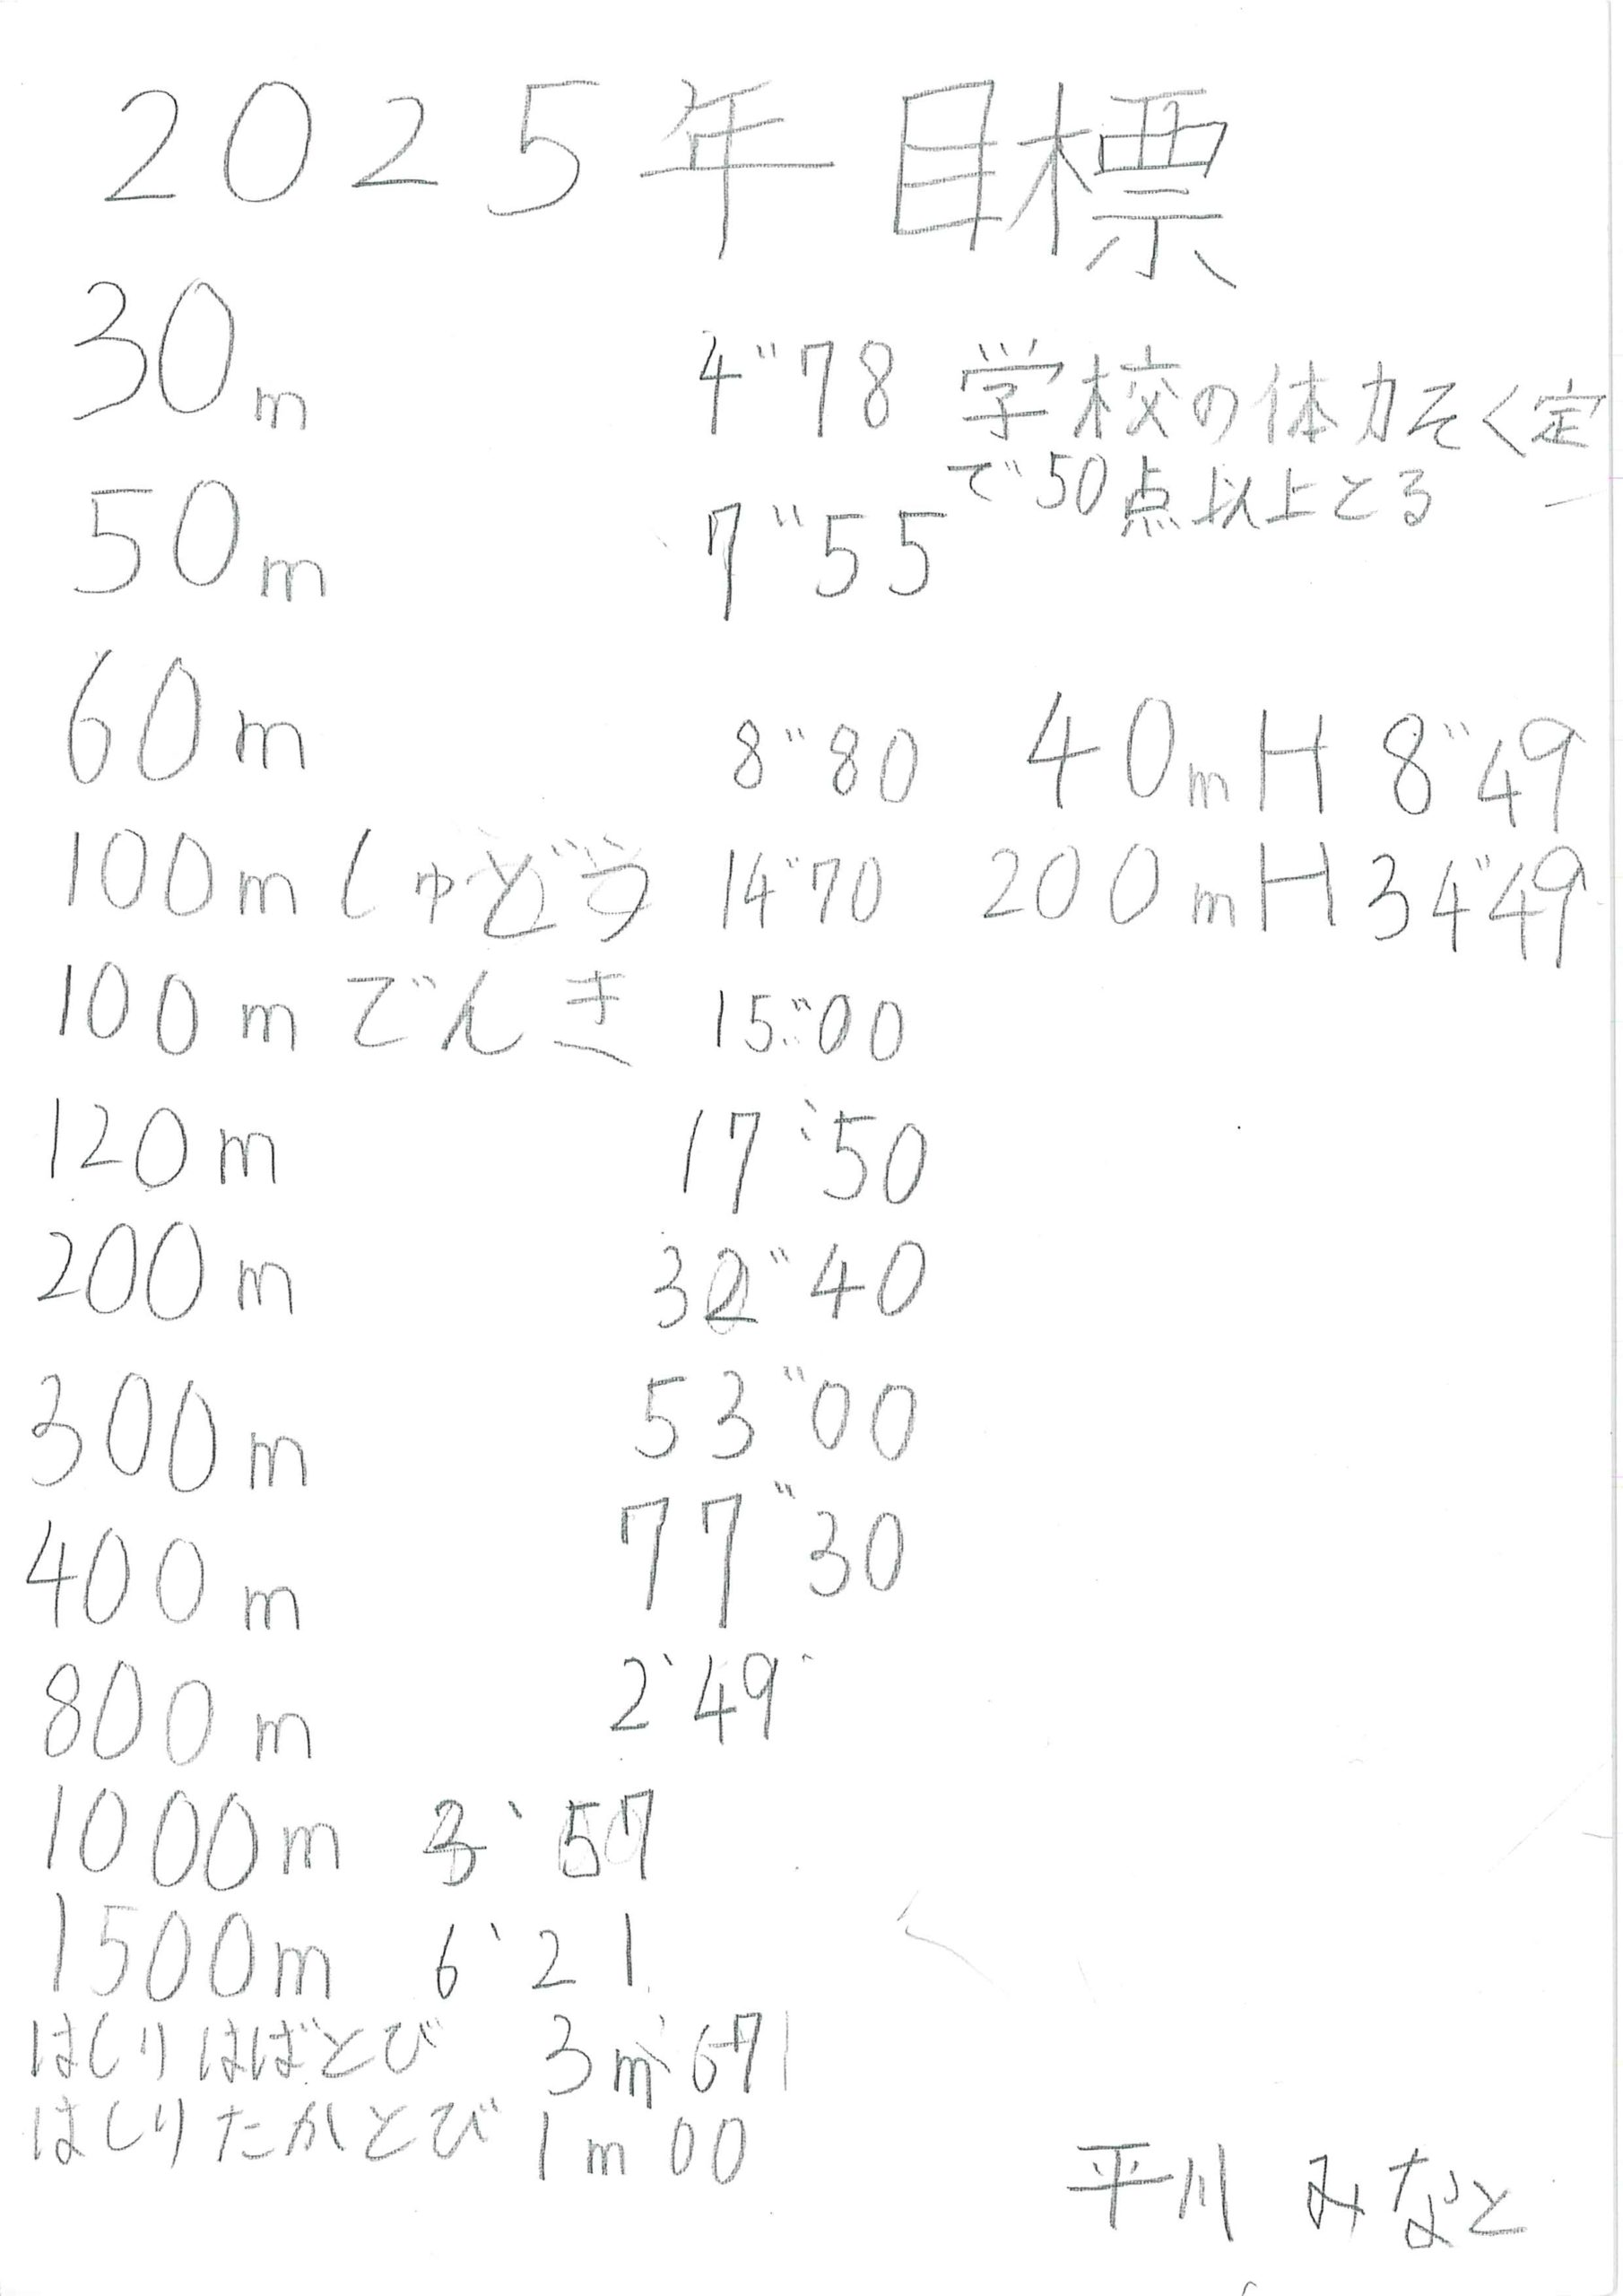 2025年 目標
30m 4"78 学校の体力そく定
で50点以上とる
50m 7"55
60m 8"80 40mH 8"49
100m しゅどう 14"70 200mH 34"49
100m でんき 15"00
120m 17"50
200m 32"40
300m 53"00
400m 77"30
800m 2'49
1000m 3'57
1500m 6'21
はしりはばとび 3m67
はしりたかとび 1m00
平川 みなと